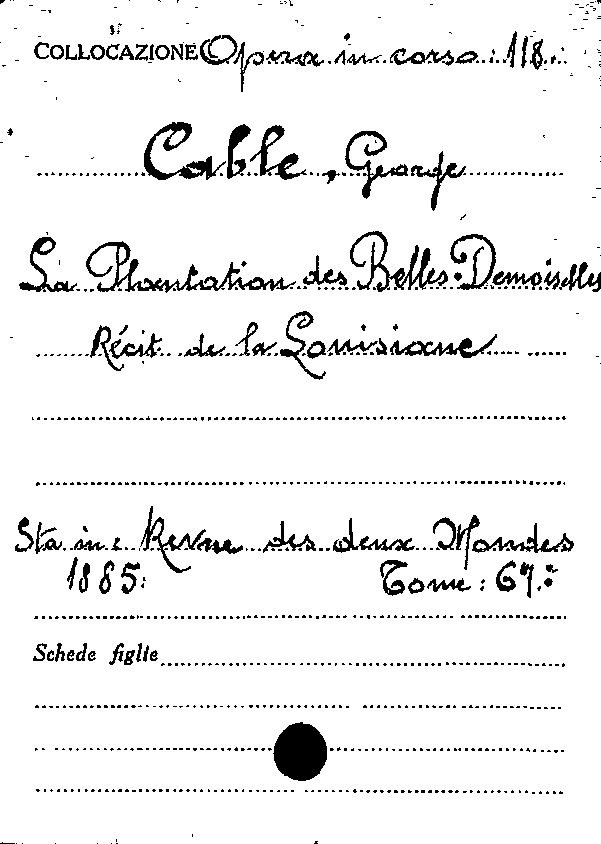 COLLOCAZIONE Opera in corso: 118.
Cable, George
La Plantation des Belles-Demoiselles
Récit de la Louisiane
Sta in: Revue des deux Mondes
1885. Tome: 67.
Schede figlie